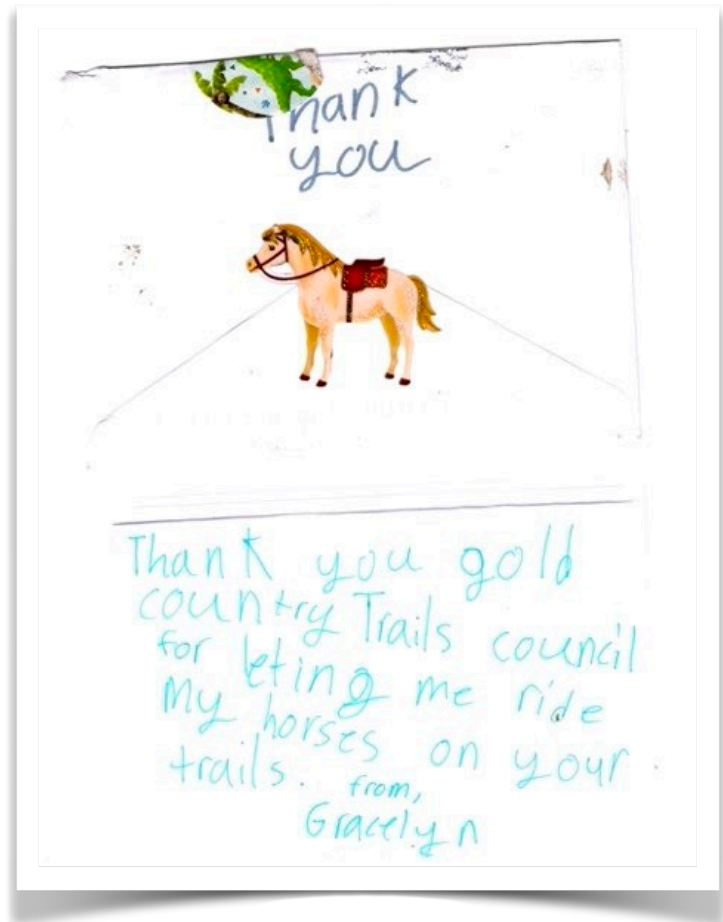 Thank
you
Thank you gold
country Trails council
for leting me ride
my horses on your
trails. from,
Gracelyn